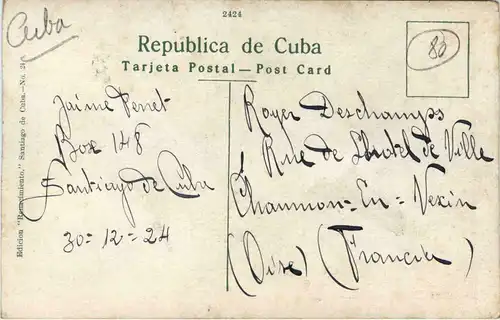 Cuba
2424
80
Republica de Cuba
Tarjeta Postal — Post Card
Edicion "Renacimiento," Santiago de Cuba.—No. 24
Jaime Penet
Box 148
Santiago de Cuba
30-12-24
Roger Deschamps
1 Rue de L'hotel de Ville
Chaumon-En-Vexin
(Oise) (Francia)